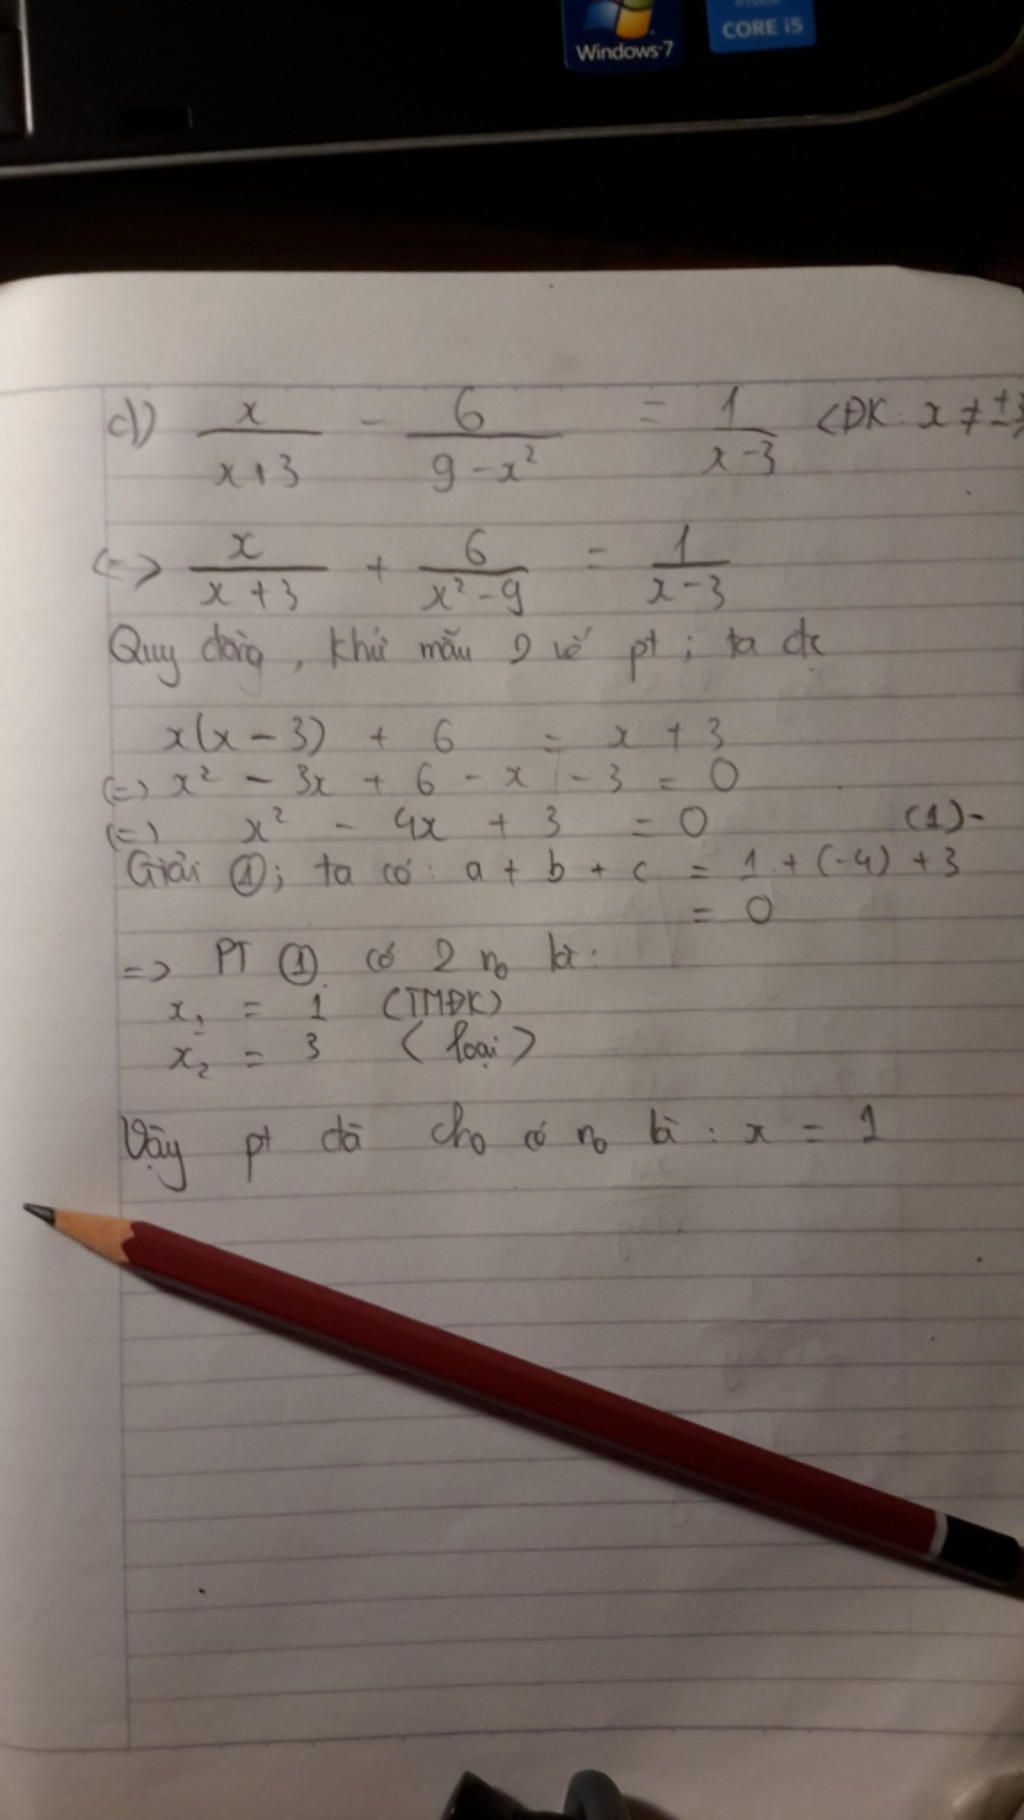 inside
CORE i5
Windows 7
d) x/(x+3) - 6/(9-x²) = 1/(x-3) (ĐK: x ≠ ±3)
<=> x/(x+3) + 6/(x²-9) = 1/(x-3)
Quy đồng, khử mẫu 2 vế pt; ta đc
x(x-3) + 6 = x + 3
(=) x² - 3x + 6 - x - 3 = 0
(=) x² - 4x + 3 = 0 (1)
Giải ①; ta có: a + b + c = 1 + (-4) + 3
= 0
=> PT ① có 2 n₀ là:
x₁ = 1 (TMĐK)
x₂ = 3 (loại)
Vậy pt đã cho có n₀ là: x = 1